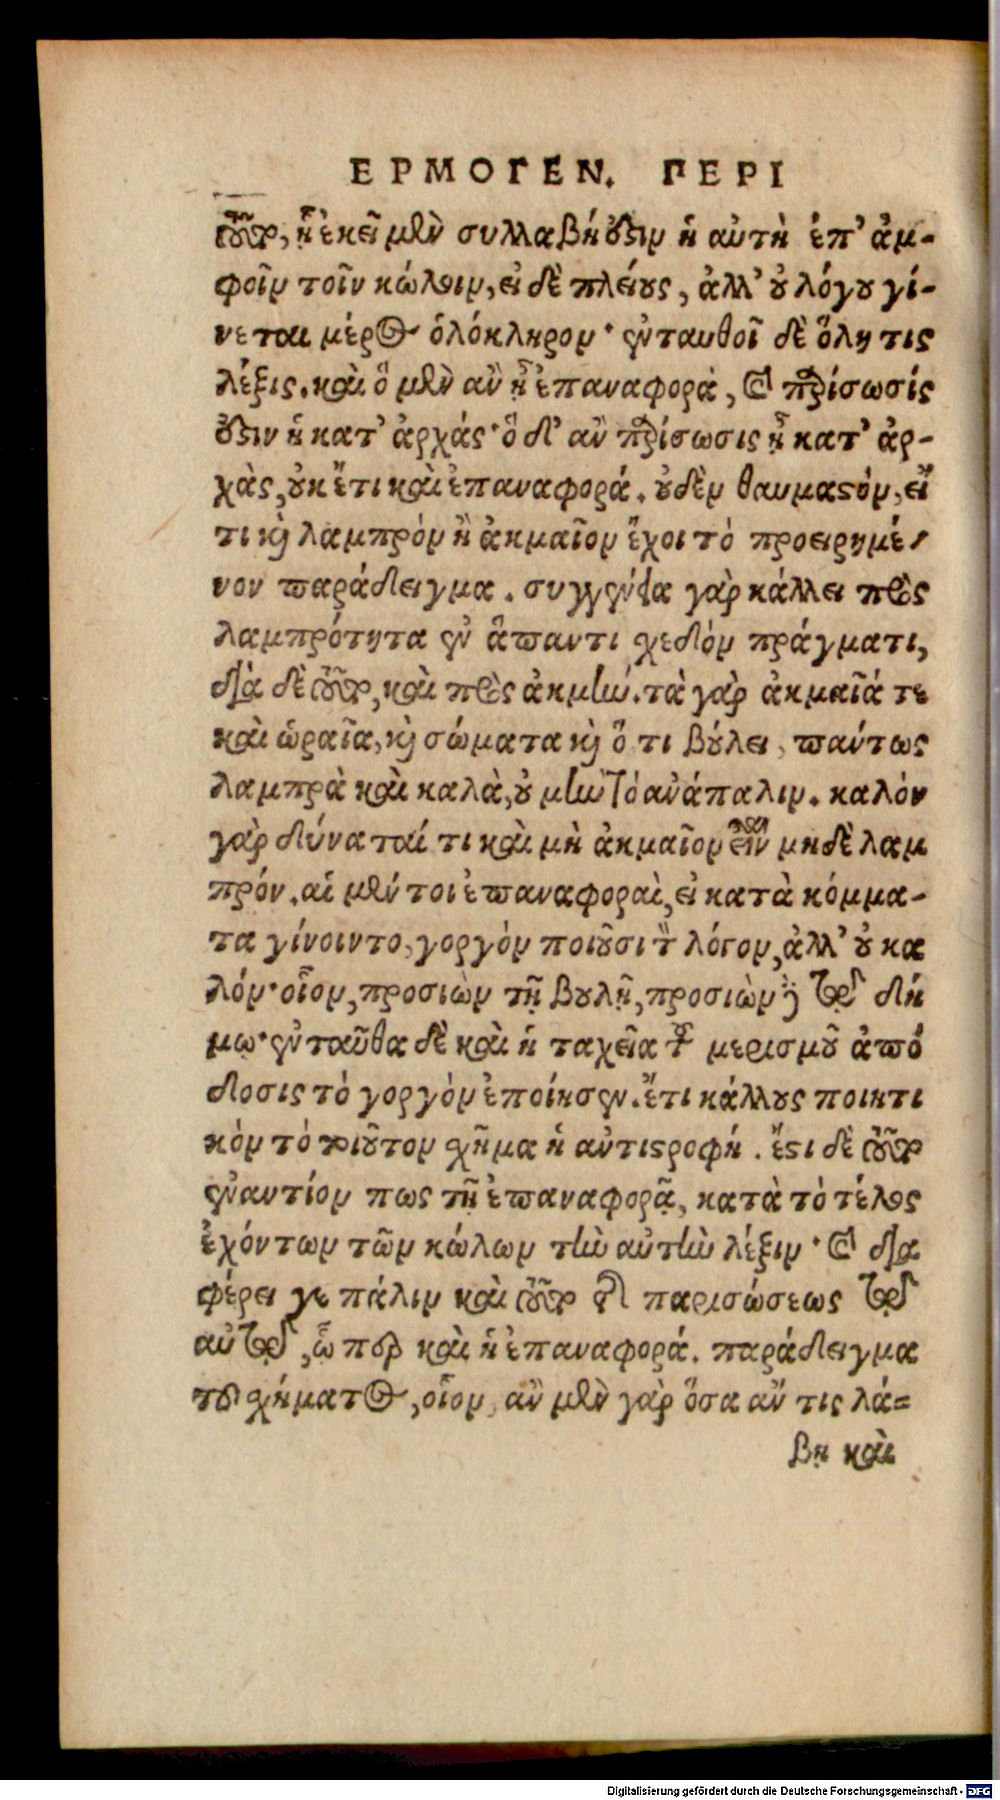 ΕΡΜΟΓΕΝ. ΠΕΡΙ
τούτῳ, ᾗ ἐκεῖ μὲν συλλαβή ἐστιν ἡ αὐτὴ ἐπ' ἀμ-
φοῖν τοῖν κώλοιν, εἰ δὲ πλείους, ἀλλ' οὐ λόγου γί-
νεται μέρος ὁλόκληρον· ἐνταυθοῖ δὲ ὅλη τις
λέξις. καὶ ὃ μὲν ἂν ᾖ ἐπαναφορά, καὶ παρίσωσίς
ἐστιν ἡ κατ' ἀρχάς· ὃ δ' ἂν παρίσωσις ᾖ κατ' ἀρ-
χὰς, οὐκ ἔτι καὶ ἐπαναφορά. οὐδὲν θαυμαστὸν, εἴ
τι καὶ λαμπρὸν ἢ ἀκμαῖον ἔχοι τὸ προειρημέ-
νον παράδειγμα. συγγένεια γὰρ κάλλει πρὸς
λαμπρότητα ἐν ἅπαντι σχεδὸν πράγματι,
διὰ δὲ τοῦτο, καὶ πρὸς ἀκμήν. τὰ γὰρ ἀκμαῖά τε
καὶ ὡραῖα, καὶ σώματα καὶ ὅ τι βούλει, πάντως
λαμπρὰ καὶ καλὰ, οὐ μὴν τὸ ἀνάπαλιν. καλὸν
γὰρ δύναταί τι καὶ μὴ ἀκμαῖον εἶναι μηδὲ λαμ
πρόν. αἱ μέν τοι ἐπαναφοραὶ, εἰ κατὰ κόμμα-
τα γίνοιντο, γοργὸν ποιοῦσι τὸν λόγον, ἀλλ' οὐ κα
λόν· οἷον, προσιὼν τῇ βουλῇ, προσιὼν τῷ δή
μῳ· ἐνταῦθα δὲ καὶ ἡ ταχεῖα τοῦ μερισμοῦ ἀπό
δοσις τὸ γοργὸν ἐποίησεν. ἔτι κάλλους ποιητι
κὸν τὸ τοιοῦτον σχῆμα ἡ ἀντιστροφή. ἔστι δὲ τοῦτο
ἐναντίον πως τῇ ἐπαναφορᾷ, κατὰ τὸ τέλος
ἐχόντων τῶν κώλων τὴν αὐτὴν λέξιν· καὶ δια
φέρει γε πάλιν καὶ τοῦτο τῆς παρισώσεως τῷ
αὐτῷ, ᾧ περ καὶ ἡ ἐπαναφορά. παράδειγμα
τοῦ σχήματος, οἷον, ἂν μὲν γὰρ ὅσα ἄν τις λά-
βῃ καὶ
Digitalisierung gefördert durch die Deutsche Forschungsgemeinschaft - DFG